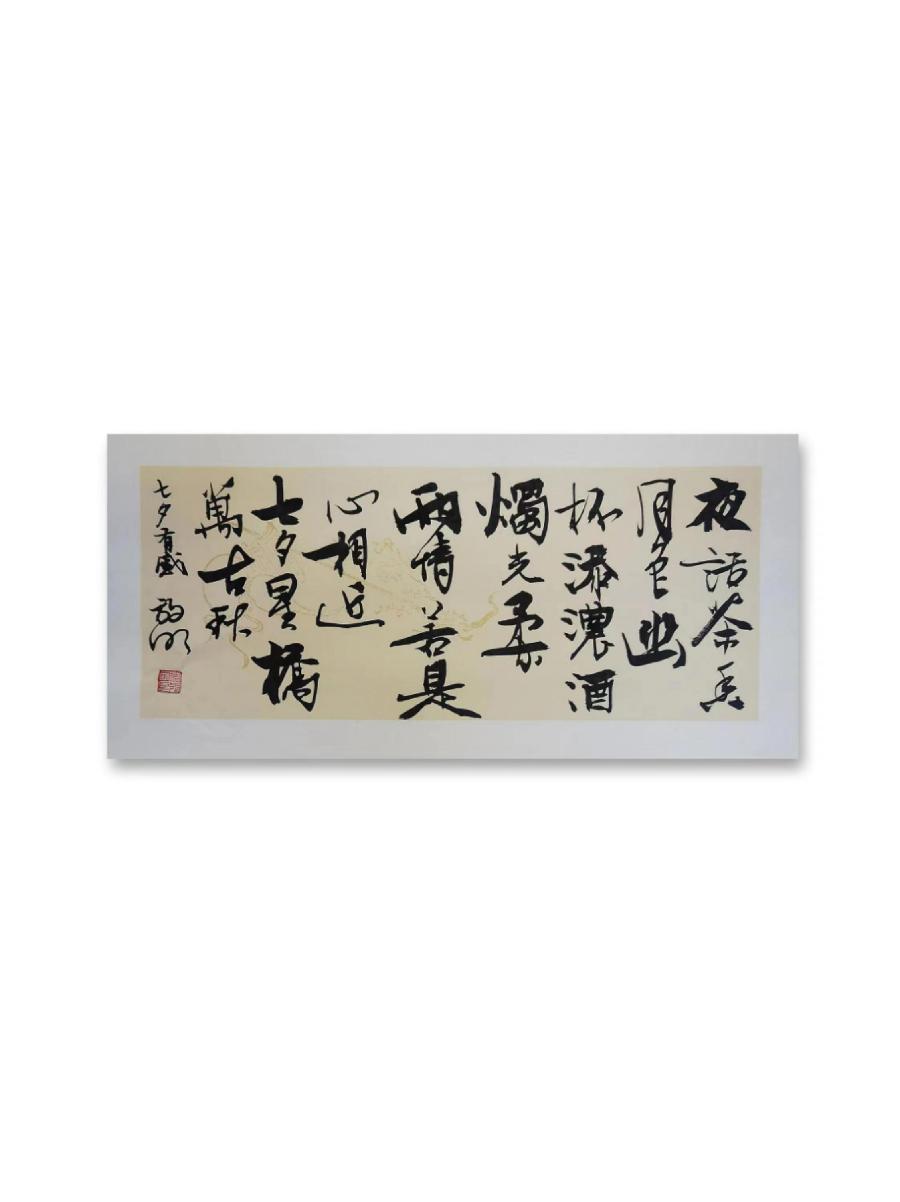 夜話茶香
月色幽
杯添濃酒
燭光柔
兩情若是
心相近
七夕星橋
萬古秋
七夕有感